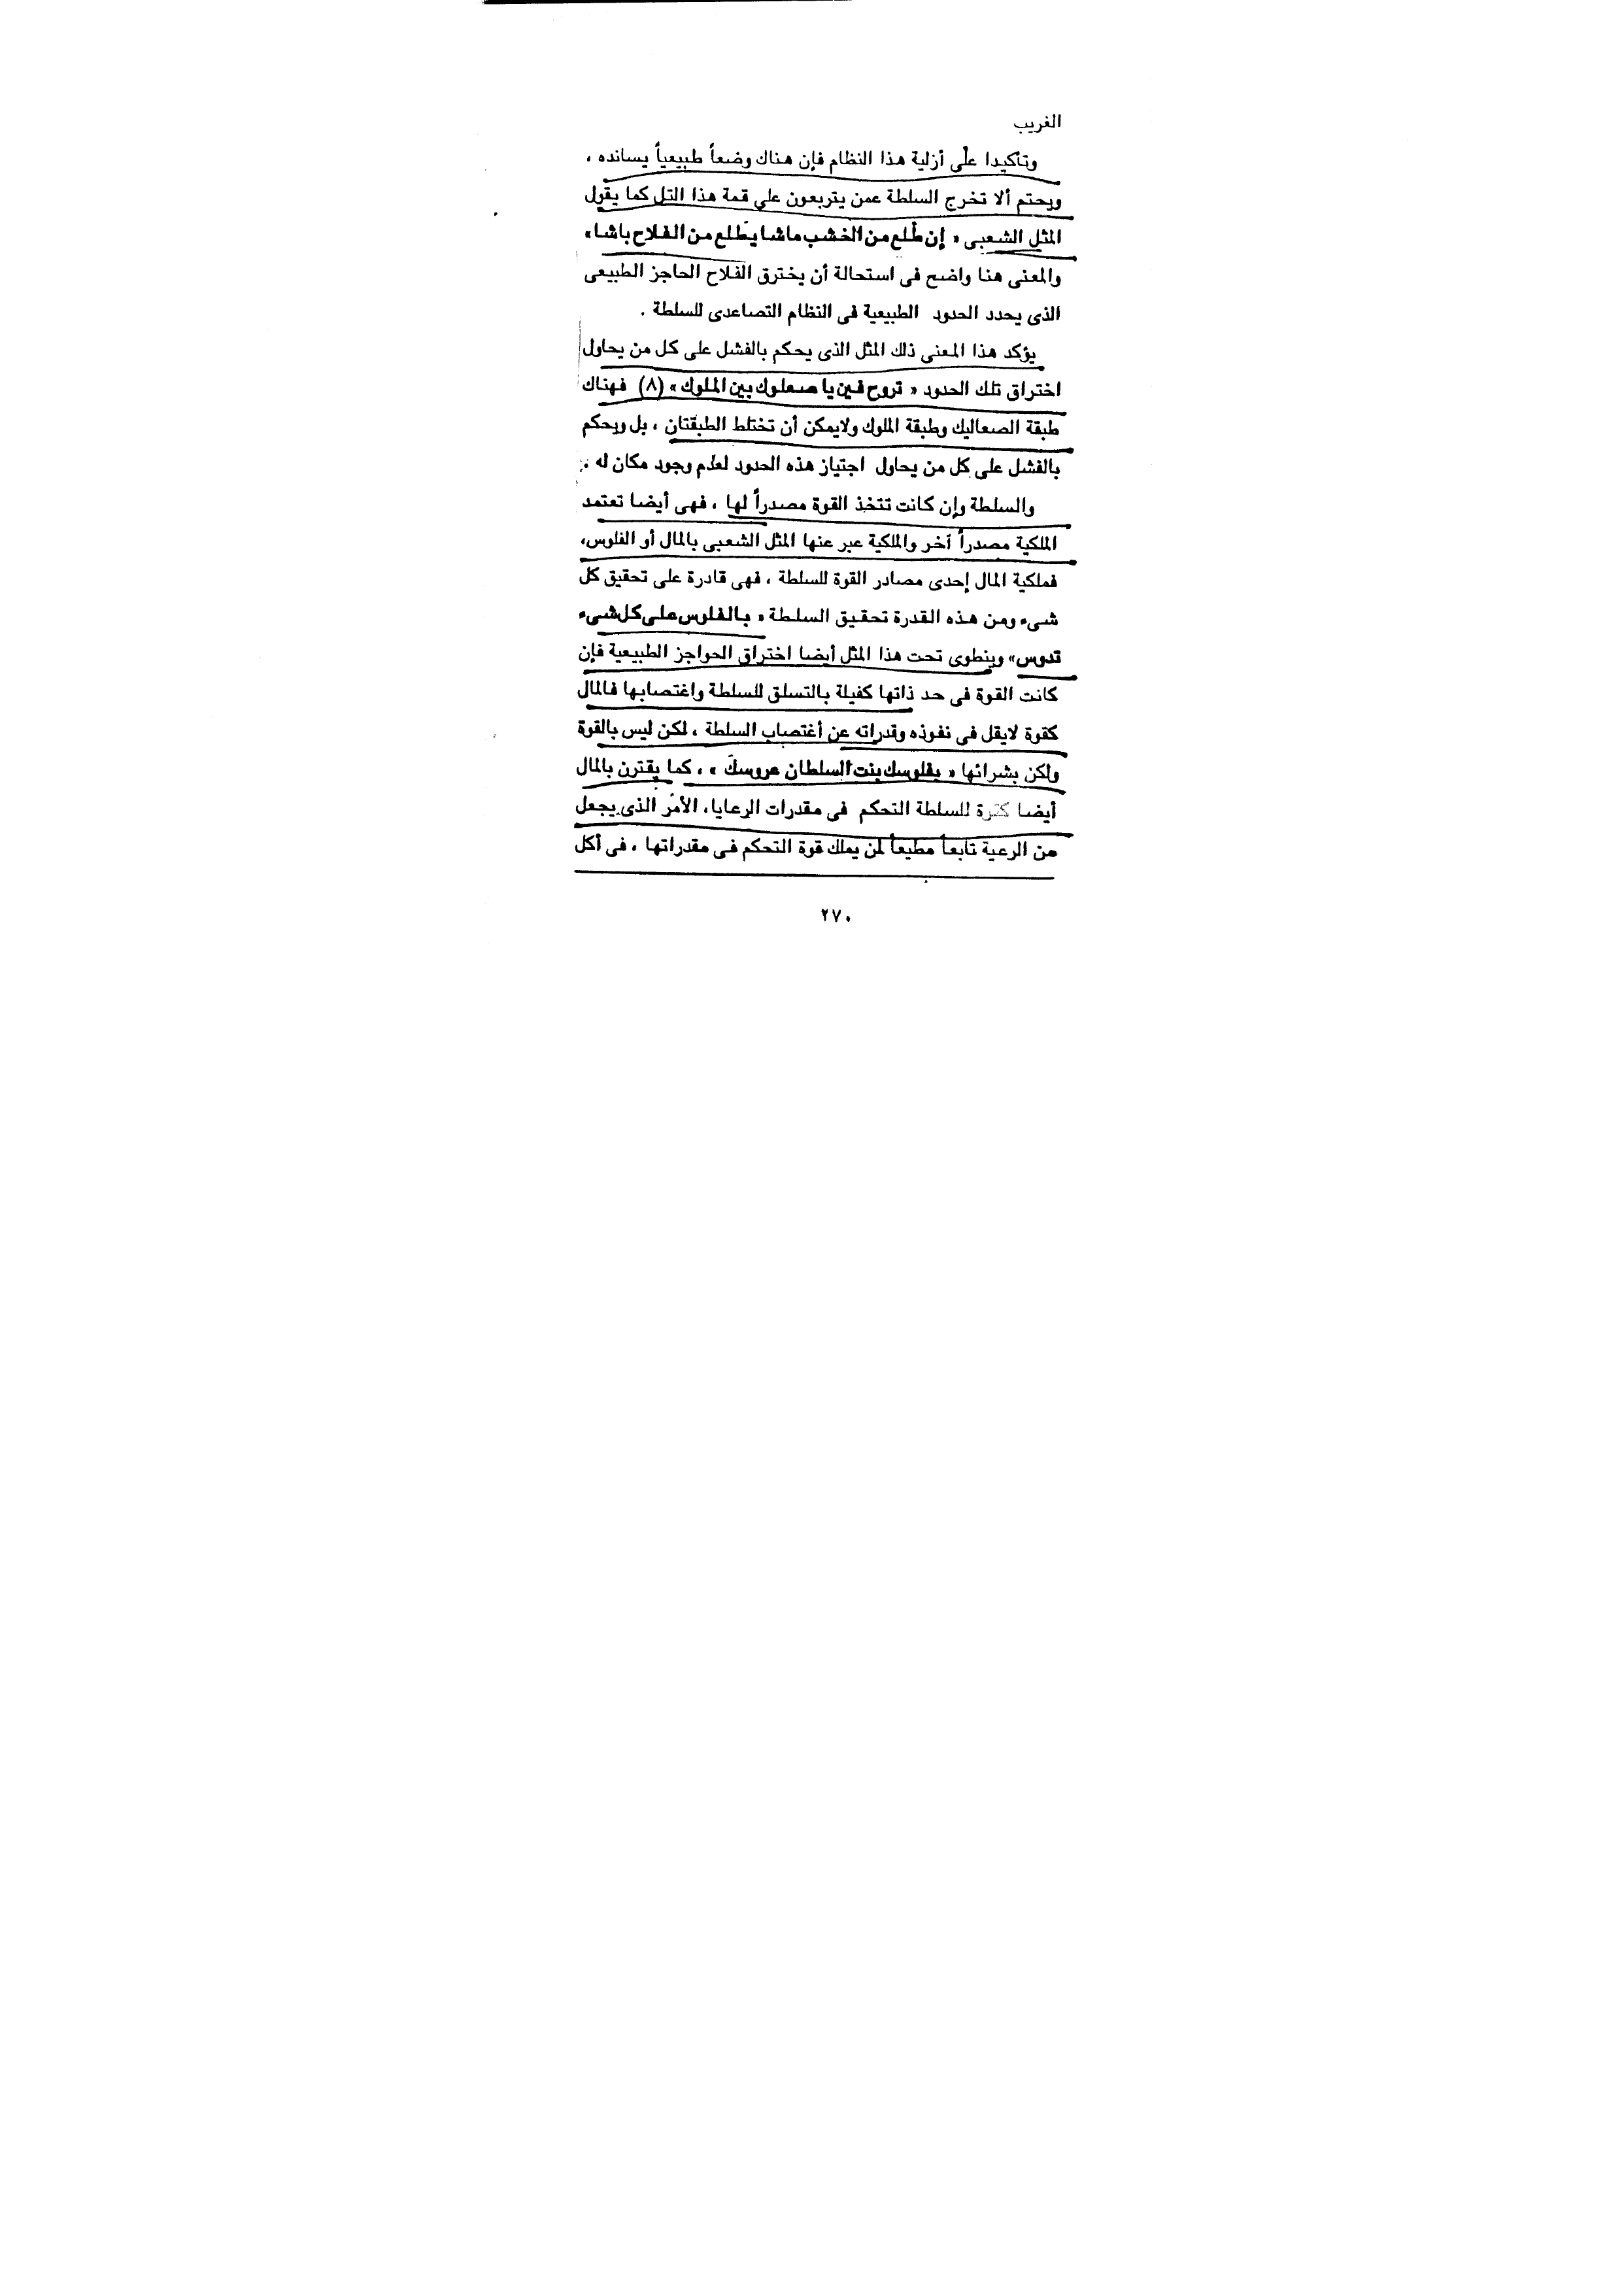 الغريب
وتأكيدا على أزلية هذا النظام فإن هناك وضعاً طبيعياً يسانده ،
ويحتم ألا تخرج السلطة عمن يتربعون علي قمة هذا التل كما يقول
المثل الشعبى « إن طلع من الخشب ماشا يطلع من الفلاح باشا»
والمعنى هنا واضح فى استحالة أن يخترق الفلاح الحاجز الطبيعى
الذى يحدد الحدود الطبيعية فى النظام التصاعدى للسلطة .
يؤكد هذا المعنى ذلك المثل الذى يحكم بالفشل على كل من يحاول
اختراق تلك الحدود « تروح فين يا صعلوك بين الملوك» (٨) فهناك
طبقة الصعاليك وطبقة الملوك ولايمكن أن تختلط الطبقتان ، بل ويحكم
بالفشل على كل من يحاول اجتياز هذه الحدود لعدم وجود مكان له .
والسلطة وإن كانت تتخذ القوة مصدراً لها ، فهى أيضا تعتمد
الملكية مصدراً آخر والملكية عبر عنها المثل الشعبى بالمال أو الفلوس،
فملكية المال إحدى مصادر القوة للسلطة ، فهى قادرة على تحقيق كل
شىء ومن هذه القدرة تحقيق السلطة « بالفلوس على كل شىء
تدوس» وينطوى تحت هذا المثل أيضا اختراق الحواجز الطبيعية فإن
كانت القوة فى حد ذاتها كفيلة بالتسلق للسلطة واغتصابها فالمال
كقوة لايقل فى نفوذه وقدراته عن أغتصاب السلطة ، لكن ليس بالقوة
ولكن بشرائها « بفلوسك بنت السلطان عروسك » ، كما يقترن بالمال
أيضا كثرة للسلطة التحكم فى مقدرات الرعايا، الأمر الذى يجعل
من الرعية تابعاً مطيعاً لمن يملك قوة التحكم فى مقدراتها ، فى أكل
٢٧٠